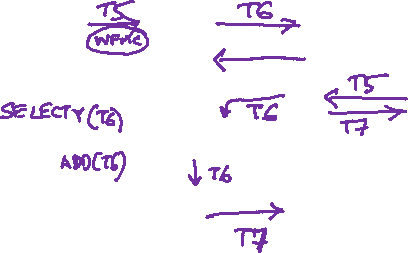 T5 T6
WFMC
T5
SELECTY(T6) T6 T7
ADD(T6) T6
T7